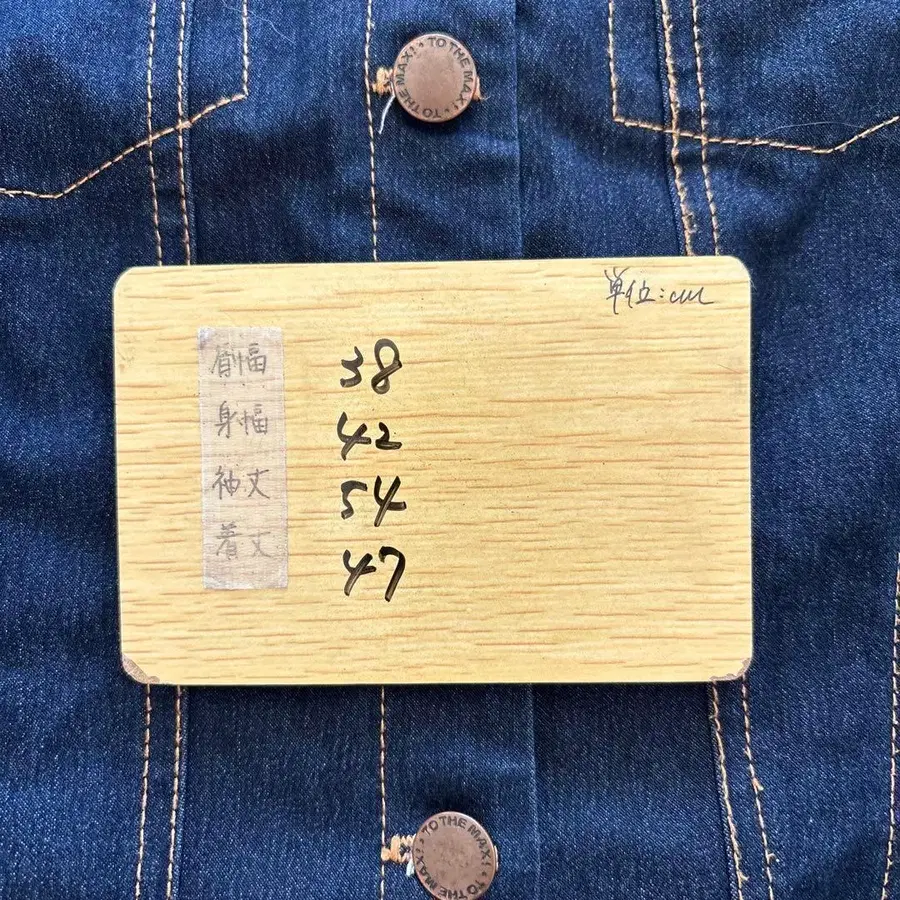 TO THE MAX! TO THE MAX!
単位:cm
肩幅 38
身幅 42
袖丈 54
着丈 47
TO THE MAX! TO